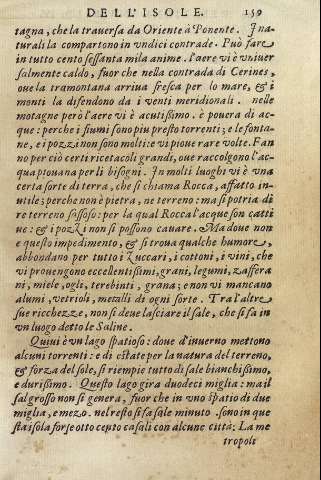 DELL'ISOLE. 159
tagna, che la trauersa da Oriente à Ponente. I na-
turali la compartono in vndici contrade. Può fare
in tutto cento sessanta mila anime. l'aere vi è vniuer
salmente caldo, fuor che nella contrada di Cerines,
oue la tramontana arriua fresca per lo mare, & i
monti la difendono da i venti meridionali. nelle
motagne però l'aere vi è acutissimo. è pouera di ac-
que: perche i fiumi sono piu presto torrenti; e le fonta-
ne, e i pozzi non sono molti: e vi pioue rare volte. Fan
no per ciò certi ricetacoli grandi, oue raccolgono l'ac
qua piouana per li bisogni. In molti luoghi vi è vna
certa sorte di terra, che si chiama Rocca, affatto in-
utile; perche non è pietra, ne terreno: ma si potria di
re terreno sassoso: per la qual Rocca l'acque son catti
ue: & i pozzi non si possono cauare. Ma doue non
e questo impedimento, & si troua qualche humore,
abbondano per tutto i Zuccari, i cottoni, i vini, che
vi prouengono eccellentissimi, grani, legumi, zaffera
ni, miele, ogli, terebinti, grana; e non vi mancano
alumi, vetrioli, metalli di ogni sorte. Tra l'altre
sue ricchezze, non si deue lasciare il sale, che si fa in
vn luogo detto le Saline.
Quiui è vn lago spatioso: doue d'inuerno mettono
alcuni torrenti: e di estate per la natura del terreno,
& forza del sole, si riempie tutto di sale bianchissimo,
e durissimo. Questo lago gira duodeci miglia: ma il
sal grosso non si genera, fuor che in vno spatio di due
miglia, e mezo. nel resto si fa sale minuto. sono in que
sta isola forse otto cento casali con alcune città: La me
tropoli